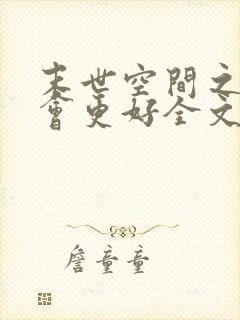 末世空間之
會更好全文
詹童童